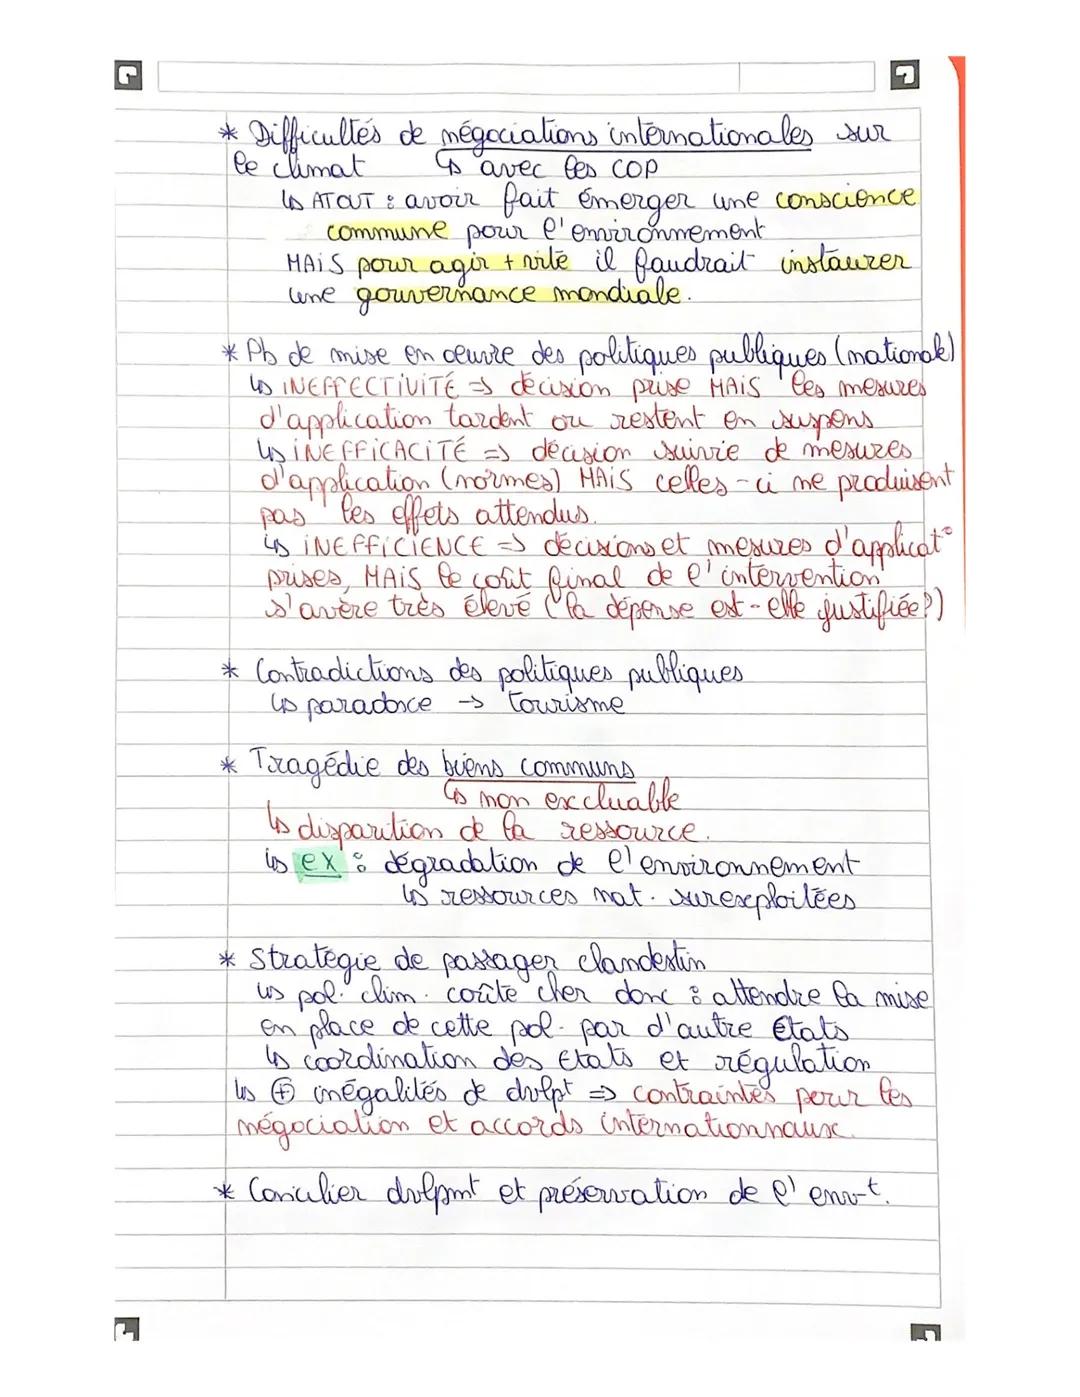 * Difficultés de négociations internationales sur
le climat ↳ avec les COP
↳ ATOUT : avoir fait émerger une conscience
commune pour l'environnement
MAIS pour agir + vite il faudrait instaurer
une gouvernance mondiale.
* Pb de mise en œuvre des politiques publiques (nationale)
↳ INEFFECTIVITÉ => décision prise MAIS les mesures
d'application tardent ou restent en suspens
↳ INEFFICACITÉ => décision suivie de mesures
d'application (normes) MAIS celles-ci ne produisent
pas les effets attendus.
↳ INEFFICIENCE => décisions et mesures d'applicat°
prises, MAIS le coût final de l'intervention
s'avère très élevé (la dépense est-elle justifiée?)
* Contradictions des politiques publiques
↳ paradoxe -> tourisme
* Tragédie des biens communs
↳ non excluable
↳ disparition de la ressource.
↳ ex : dégradation de l'environnement
↳ ressources nat. surexploitées
* Stratégie de passager clandestin
↳ pol. clim. coûte cher donc : attendre la mise
en place de cette pol. par d'autre États
↳ coordination des Etats et régulation
↳ ⊕ inégalités de dvlpt => contraintes pour les
négociation et accords internationnaux.
* Conculier dvlpmt et préservation de l'env-t.